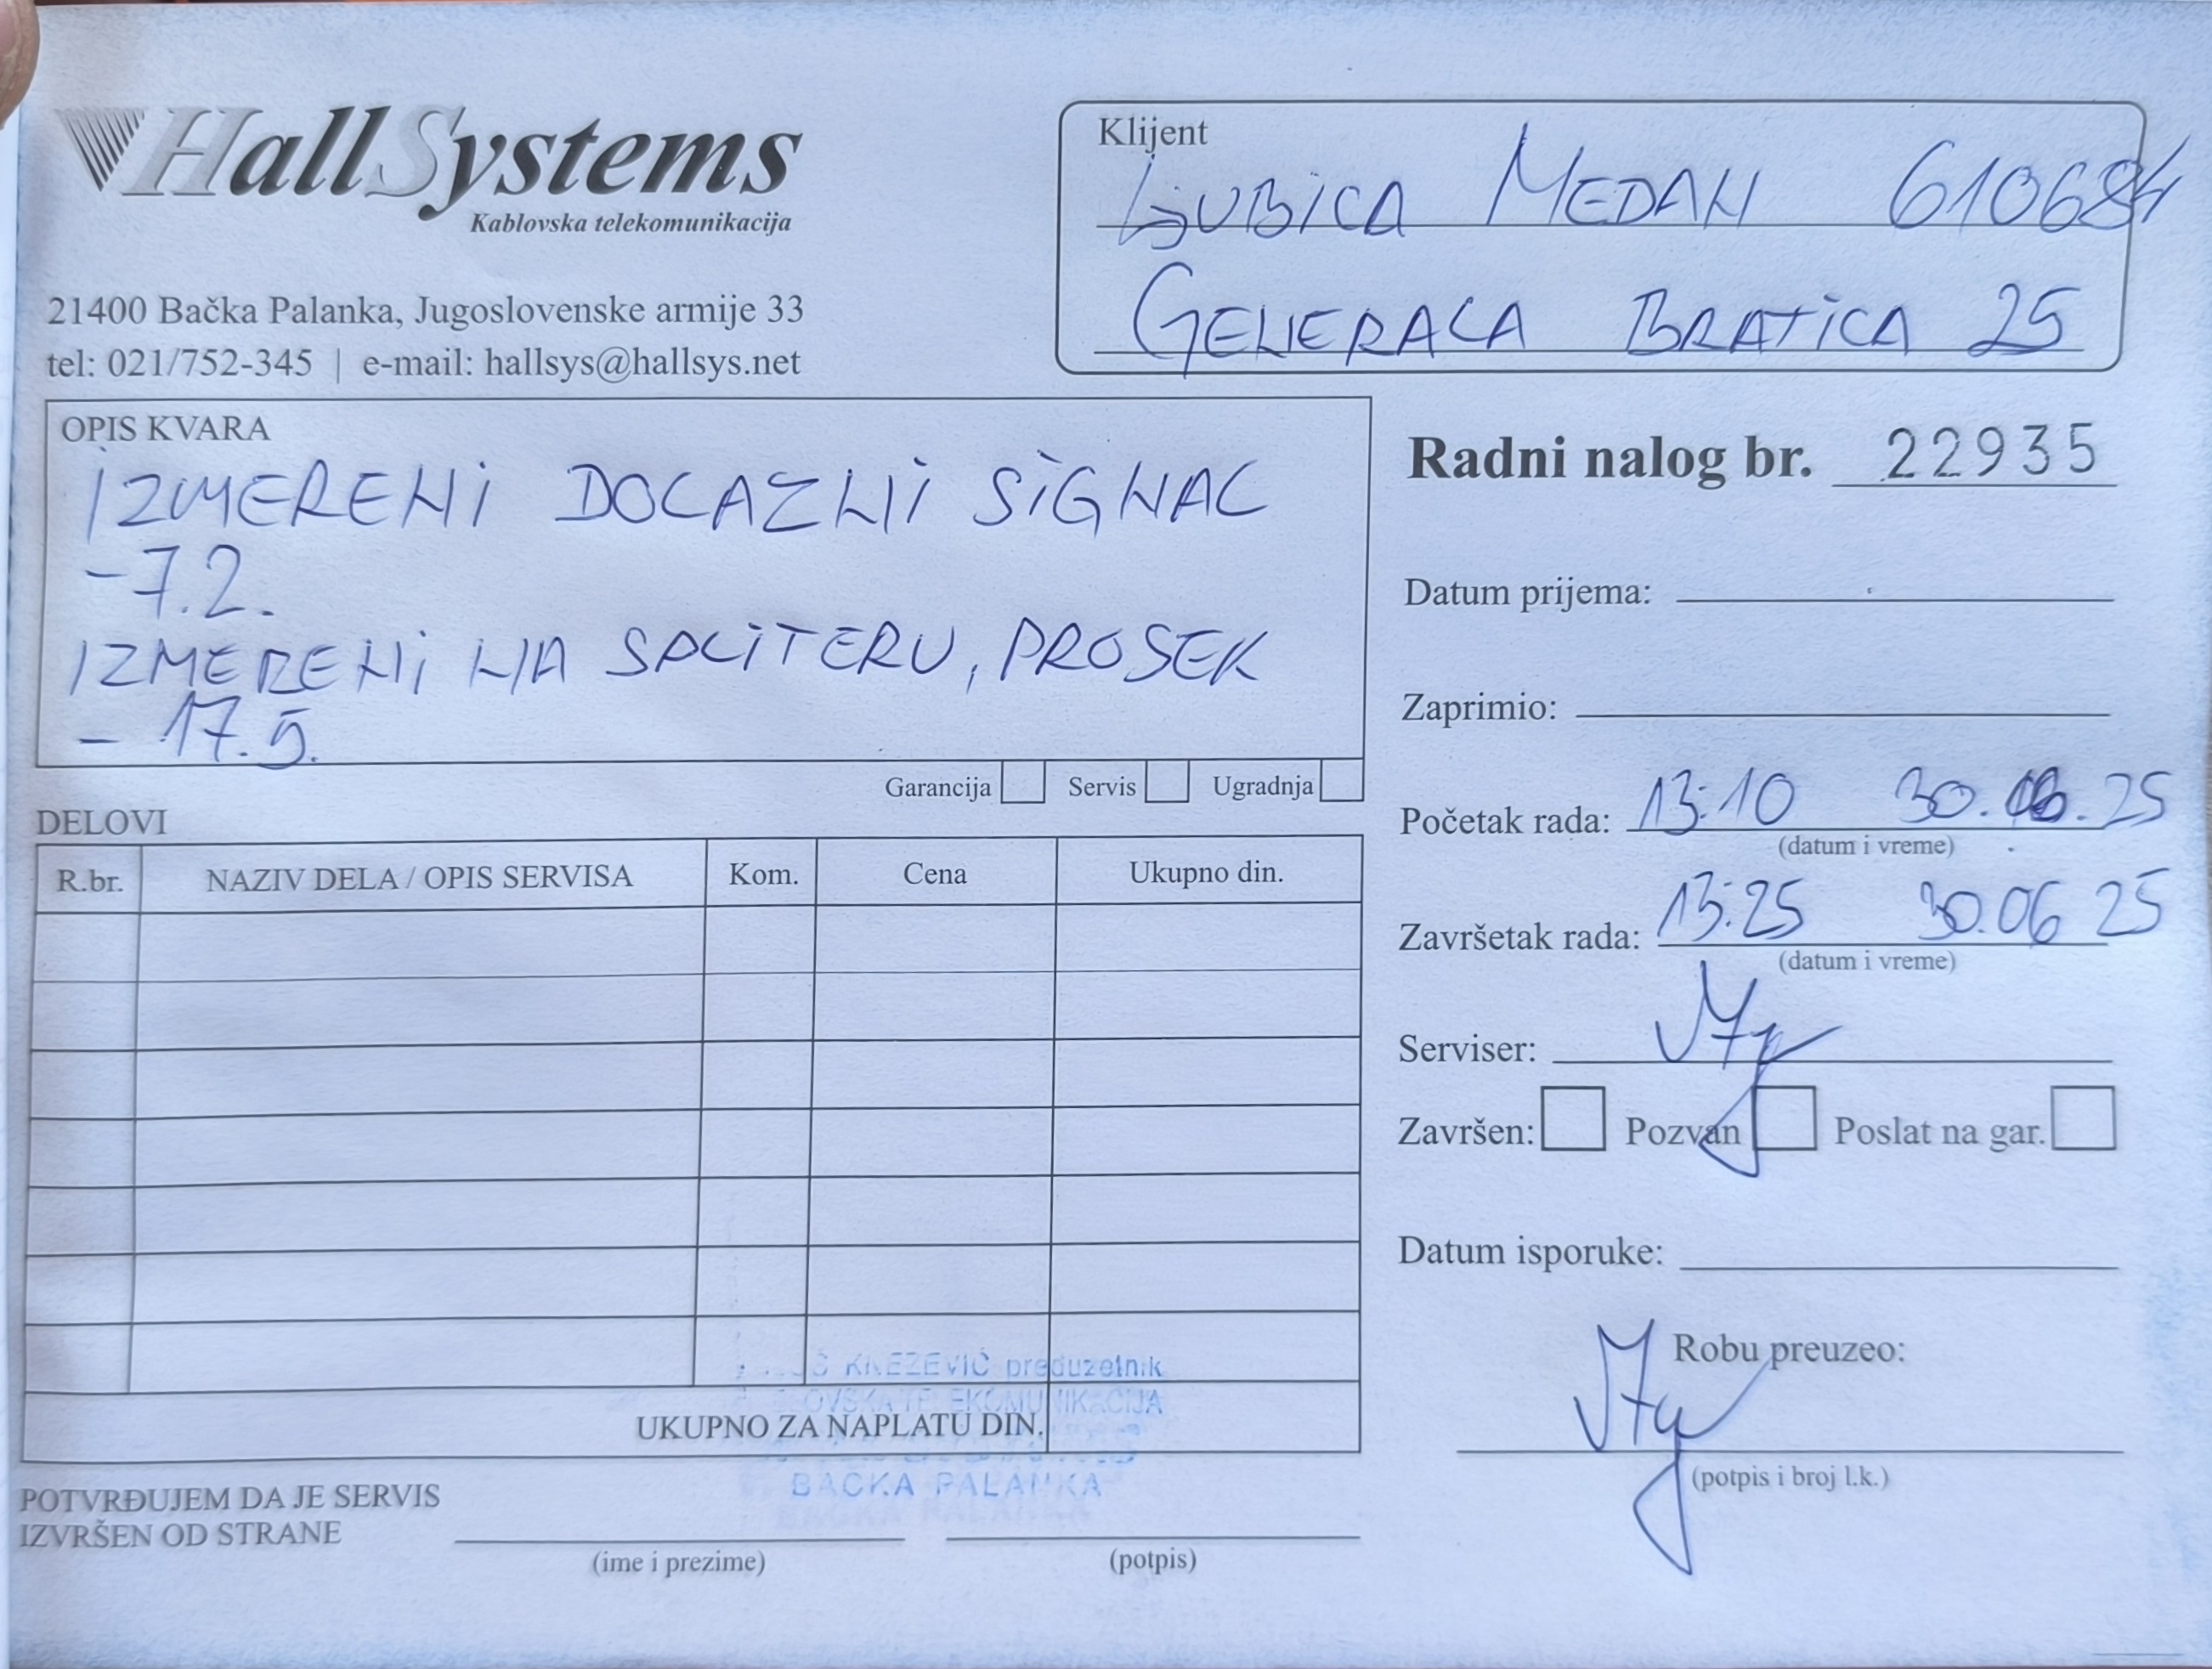 HallSystems
Kablovska telekomunikacija
21400 Bačka Palanka, Jugoslovenske armije 33
tel: 021/752-345 | e-mail: hallsys@hallsys.net
Klijent
LJUBICA MEDAN 610684
GENERALA BRATICA 25
OPIS KVARA
IZMERENI DOLAZNI SIGNAL
-7.2.
IZMERENI NA SPLITERU, PROSEK
- 17.5.
Garancija Servis Ugradnja
Radni nalog br. 22935
Datum prijema:
Zaprimio:
Početak rada: 13:10 30.06.25
(datum i vreme)
Završetak rada: 13:25 30.06 25
(datum i vreme)
Serviser:
Završen: Pozvan Poslat na gar.
Datum isporuke:
Robu preuzeo:
(potpis i broj l.k.)
DELOVI
R.br. NAZIV DELA / OPIS SERVISA Kom. Cena Ukupno din.
KNEZEVIĆ preduzetnik
UKUPNO ZA NAPLATU DIN.
BAČKA PALANKA
POTVRĐUJEM DA JE SERVIS
IZVRŠEN OD STRANE
(ime i prezime) (potpis)